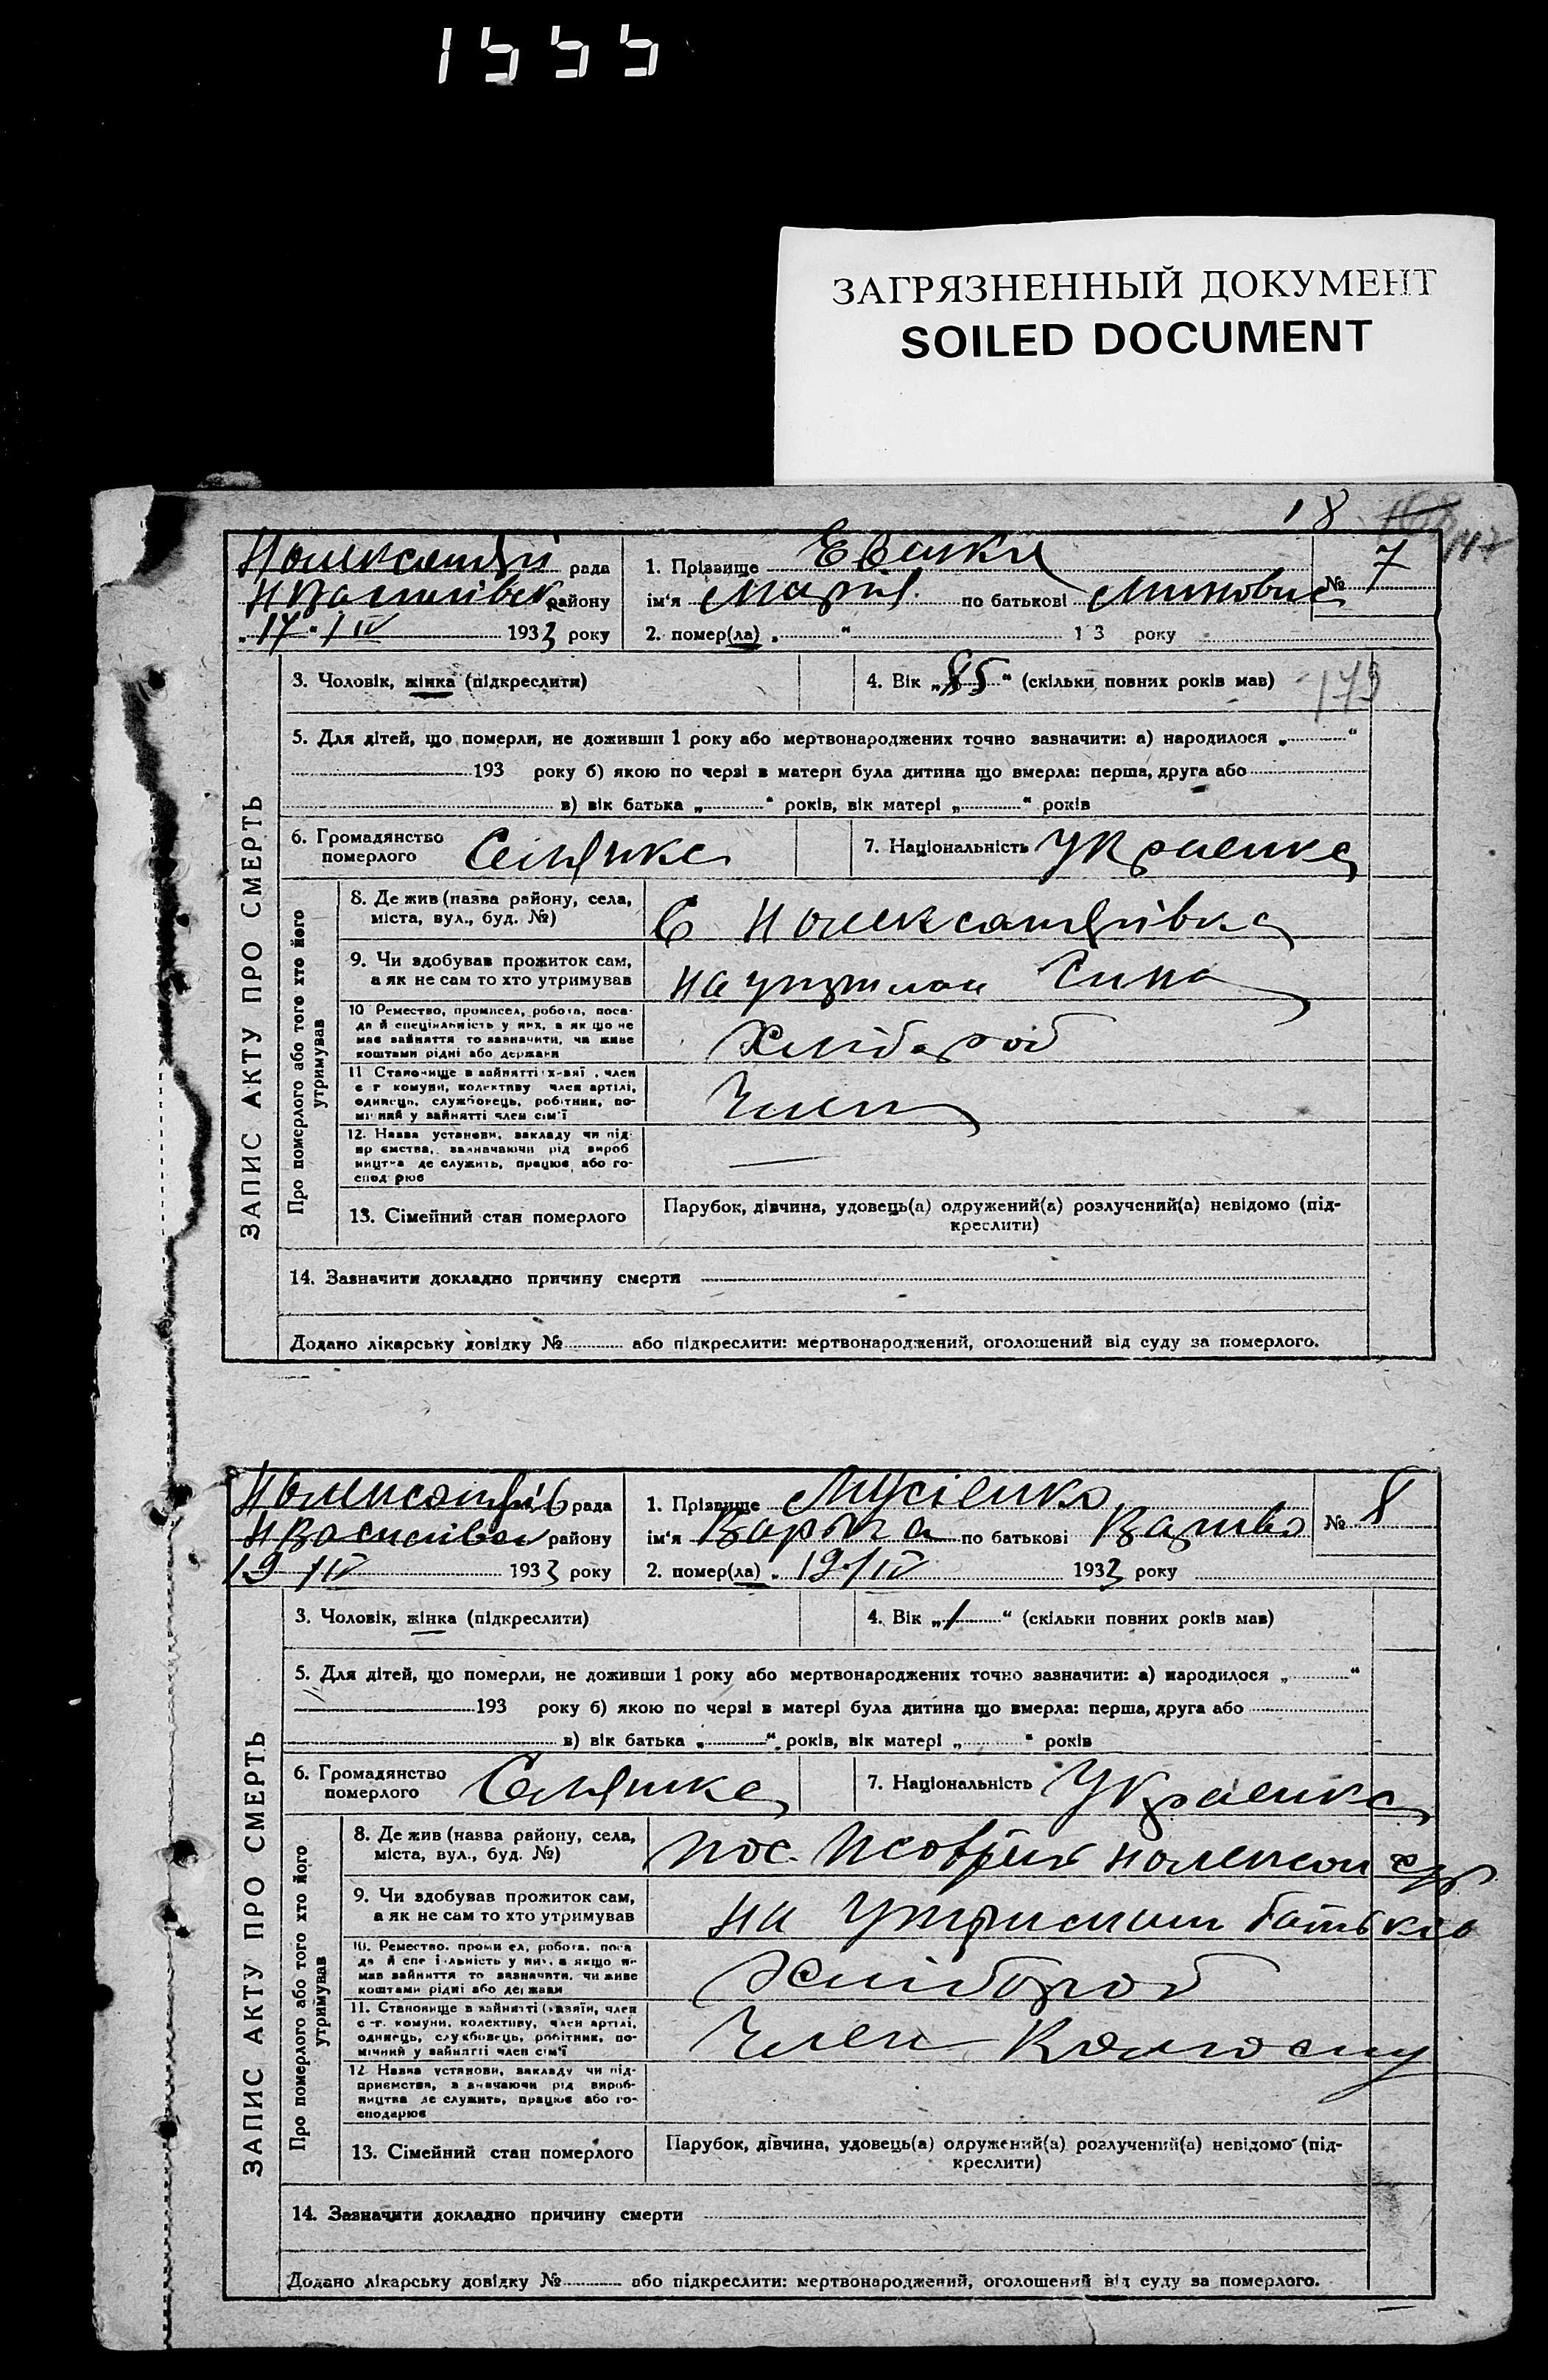 1555
ЗАГРЯЗНЕННЫЙ ДОКУМЕНТ
SOILED DOCUMENT
18
рада
району
17 / IV 1933 року
1. Прізвище
ім'я Марія по батькові
№ 7
2. помер(ла) „ “ 1 3 року
3. Чоловік, жінка (підкреслити)
4. Вік „85“ (скільки повних років мав)
5. Для дітей, що померли, не доживши 1 року або мертвонароджених точно зазначити: а) народилося „ “
193 року б) якою по черзі в матери була дитина що вмерла: перша, друга або
в) вік батька „ “ років, вік матері „ “ років
ЗАПИС АКТУ ПРО СМЕРТЬ
6. Громадянство
померлого
Селянка
7. Національність Украенка
Про померлого або того хто його
утримував
8. Де жив (назва району, села,
міста, вул., буд. №)
9. Чи здобував прожиток сам,
а як не сам то хто утримував
Сина
10 Ремество, промисел, робота, поса-
да й спеціяльність у них, а як що не
має зайняття то зазначити, чи живе
коштами рідні або держави
Хлібороб
11 Становище в зайнятті член
с г комуни, колективу член артілі,
одинець, службовець, робітник, по-
мічний у зайнятті член сім'ї
Член
12. Назва установи, закладу чи під-
пр ємства, зазначаючи рід вироб
ництва де служить, працює або го-
спод рює
13. Сімейний стан померлого
Парубок, дівчина, удовець(а) одружений(а) розлучений(а) невідомо (під-
креслити)
14. Зазначити докладно причину смерти
Додано лікарську довідку № або підкреслити: мертвонароджений, оголошений від суду за померлого.
рада
району
19 / IV 1933 року
1. Прізвище Мусіенко
ім'я по батькові
№ 8
2. помер(ла) „ 19 / IV 1933 року
3. Чоловік, жінка (підкреслити)
4. Вік „1“ (скільки повних років мав)
5. Для дітей, що померли, не доживши 1 року або мертвонароджених точно зазначити: а) народилося „ “
193 року б) якою по черзі в матері була дитина що вмерла: перша, друга або
в) вік батька „ “ років, вік матері „ “ років
ЗАПИС АКТУ ПРО СМЕРТЬ
6. Громадянство
померлого
Селянка
7. Національність Украенка
Про померлого або того хто його
утримував
8. Де жив (назва району, села,
міста, вул., буд. №)
пос.
9. Чи здобував прожиток сам,
а як не сам то хто утримував
на батька
10. Ремество, проми ел, робота, поса
да й спе і льність у них, а якщо не
має зайняття то зазначити, чи живе
коштами рідні або держави
Хлібороб
11. Становище в зайнятті (хазяїн, член
с.-г. комуни, колективу, член артілі,
одинець, службовець, робітник, по-
мічний у зайнятті член сім'ї
Член Колгоспу
12 Назва установи, закладу чи під-
приємства, зазначаючи рід вироб-
ництва де служить, працює або го-
сподарює
13. Сімейний стан померлого
Парубок, дівчина, удовець(а) одружений(а) розлучений(а) невідомо (під-
креслити)
14. Зазначити докладно причину смерти
Додано лікарську довідку № або підкреслити: мертвонароджений, оголошений від суду за померлого.